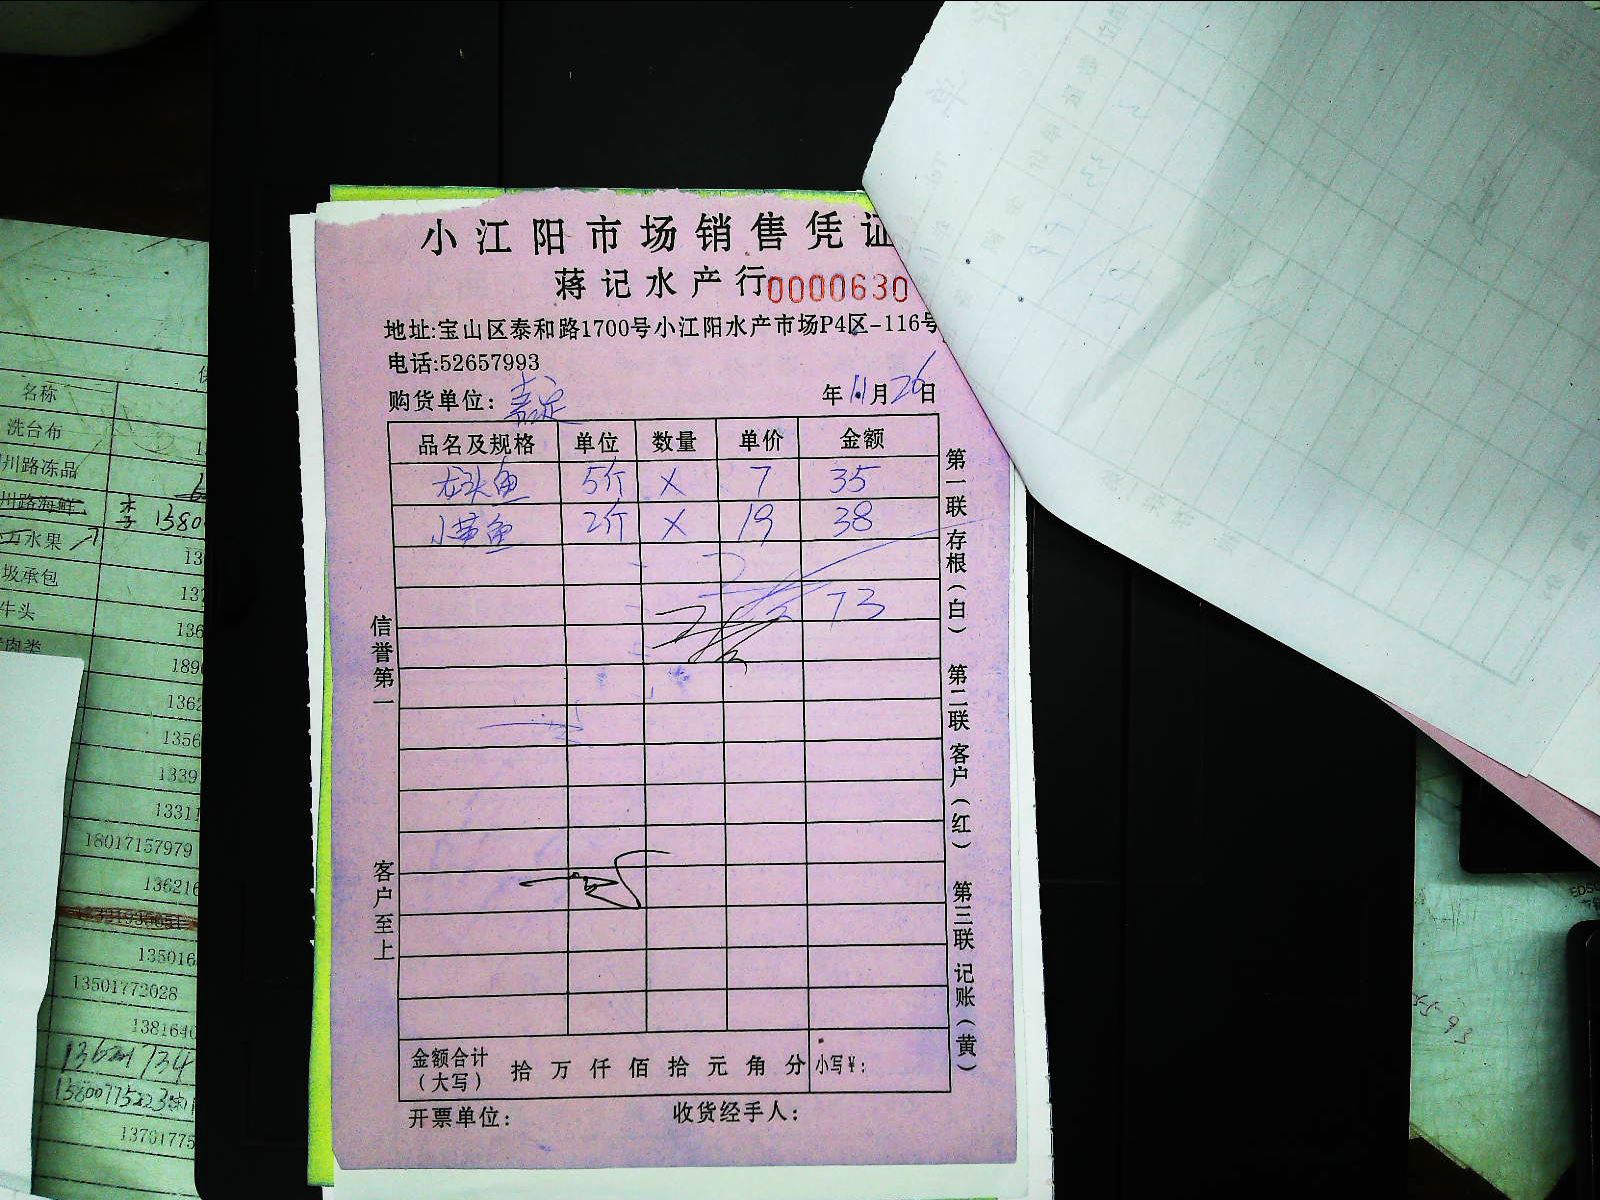 小江阳市场销售凭证
蒋记水产行 0000630
地址:宝山区泰和路1700号小江阳水产市场P4区-116号
电话:52657993
购货单位: 嘉定 年 11月 26日
品名及规格 单位 数量 单价 金额
龙头鱼 5斤 X 7 35
小黄鱼 2斤 X 19 38
73
金额合计(大写) 拾 万 仟 佰 拾 元 角 分 小写¥:
开票单位: 收货经手人:
信誉第一
客户至上
第一联 存根(白)
第二联 客户(红)
第三联 记账(黄)
名称
洗台布
川路冻品
州路海鲜 李 1380
水果
圾承包
牛头
肉类
1362
1356
1339
1331
18017157979
136216
135016
13501772028
138164
13701775